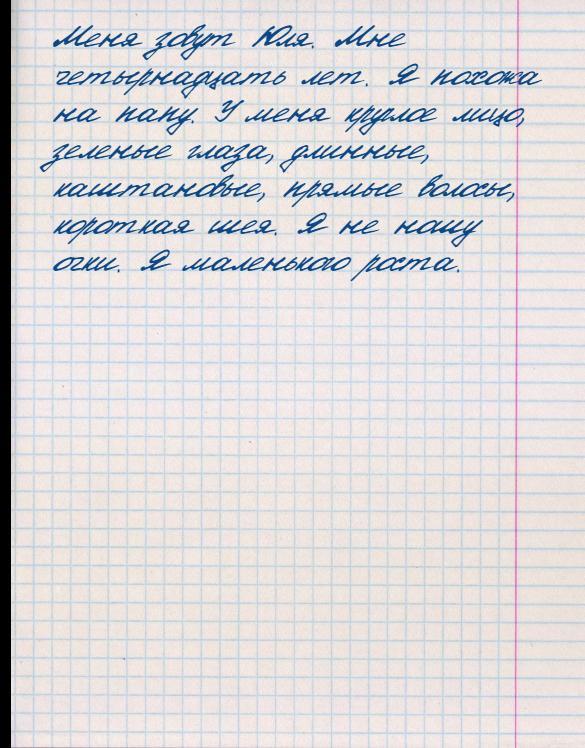 Меня зовут Юля. Мне
четырнадцать лет. Я похожа
на папу. У меня круглое лицо,
зеленые глаза, длинные,
каштановые, прямые волосы,
короткая шея. Я не ношу
очки. Я маленького роста.